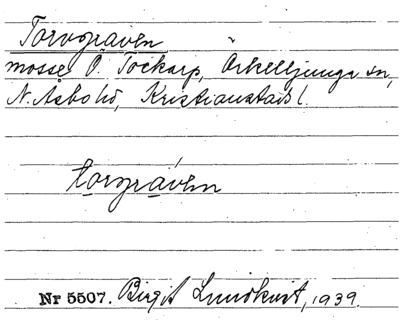 Torvgraven
mosse, Ö. Tockarp, Örkelljunga sn,
N. Asbo hd, Kristianstads l.
torvgraven
Nr 5507. Birgit Lundkvist, 1939.